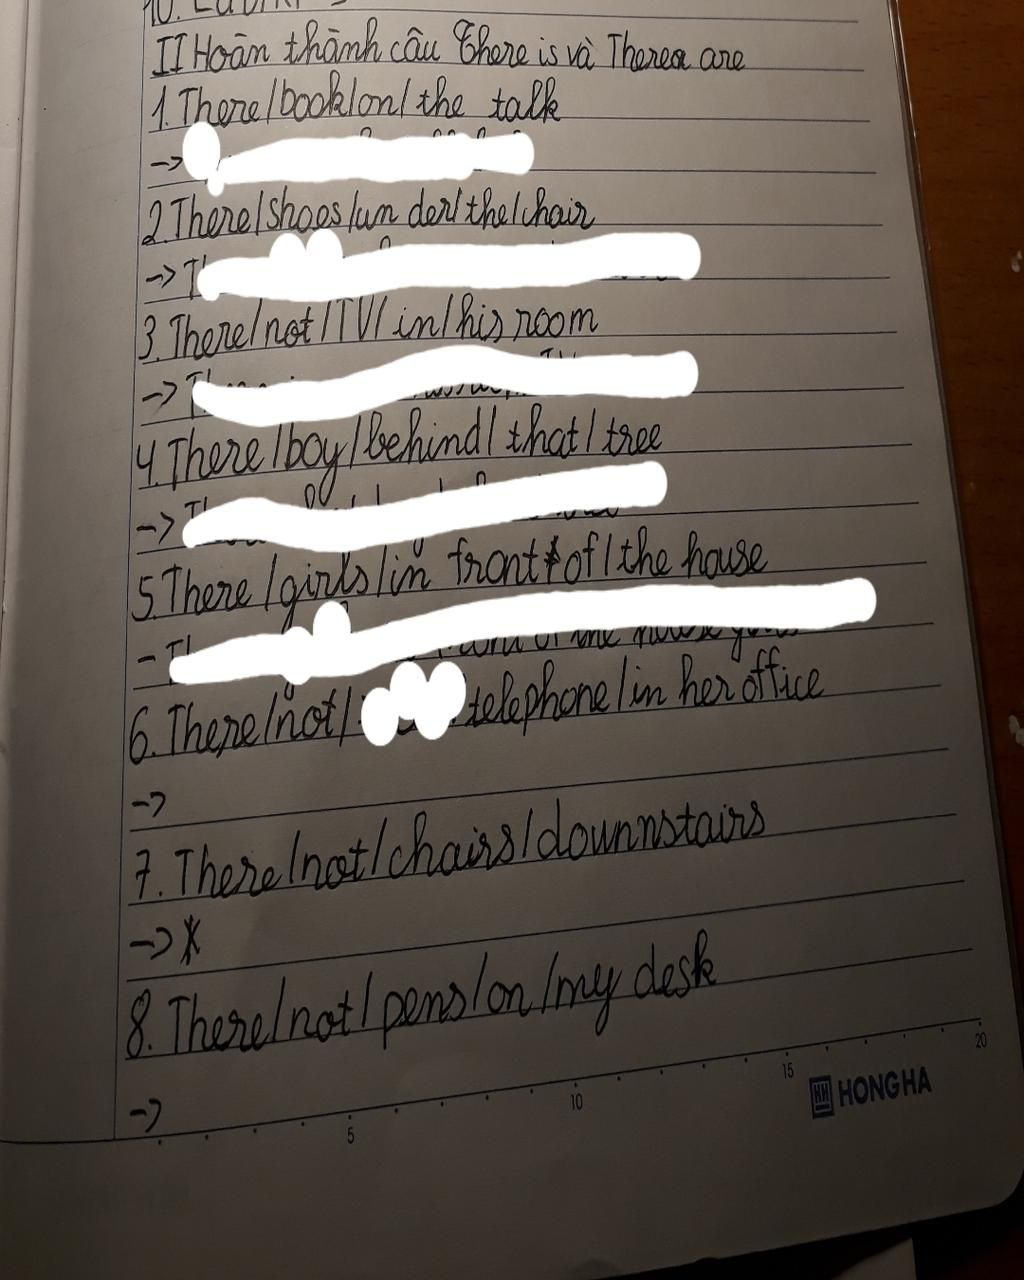 II Hoàn thành câu There is và Therea are
1. There/book/on/the talk
->
2. There/shoes/un der/the/chair
->
3. There/not/TV/in/his room
->
4. There/boy/behind/that/tree
->
5. There/girls/in front of/the house
-
6. There/not/ telephone/in her office
->
7. There/not/chairs/downnstairs
->
8. There/not/pens/on/my desk
->
5 10 15 20
HH HONG HA